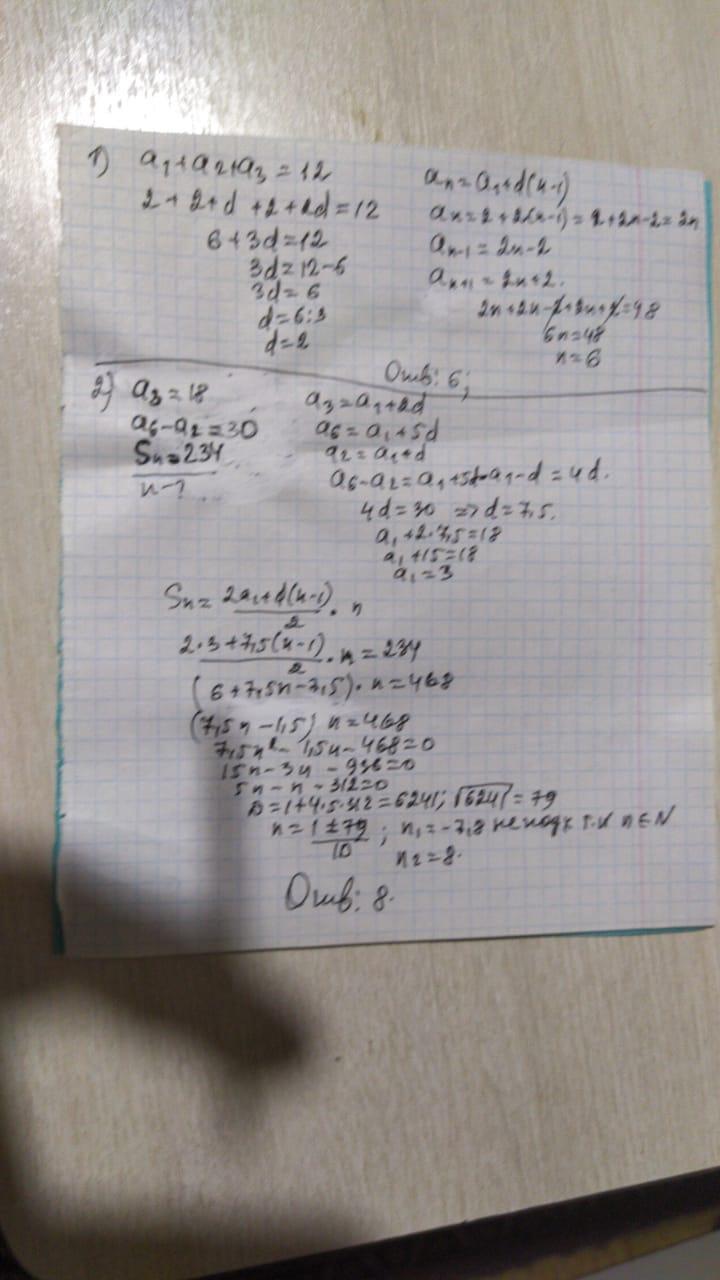 1) a₁+a₂+a₃=12
2+2+d+2+2d=12
6+3d=12
3d=12-6
3d=6
d=6:3
d=2
aₙ=a₁+d(n-1)
aₙ=2+2(n-1)=2+2n-2=2n
aₙ₋₁=2n-2
aₙ₊₁=2n+2.
2n+2n-2+2n+2=48
6n=48
n=6
Отв: 6;
2) a₃=18
a₆-a₂=30
Sₙ=234
n-?
a₃=a₁+2d
a₆=a₁+5d
a₂=a₁+d
a₆-a₂=a₁+5d-a₁-d=4d.
4d=30 => d=7,5.
a₁+2·7,5=18
a₁+15=18
a₁=3
Sₙ=(2a₁+d(n-1))/2·n
(2·3+7,5(n-1))/2·n=234
(6+7,5n-7,5)·n=468
(7,5n-1,5) n=468
7,5n²-1,5n-468=0
15n-3n-936=0
5n-n-312=0
D=1+4·5·312=6241; √6241=79
n=(1±79)/10; n₁=-7,8 не подх т.к n∈N
n₂=8.
Отв: 8.